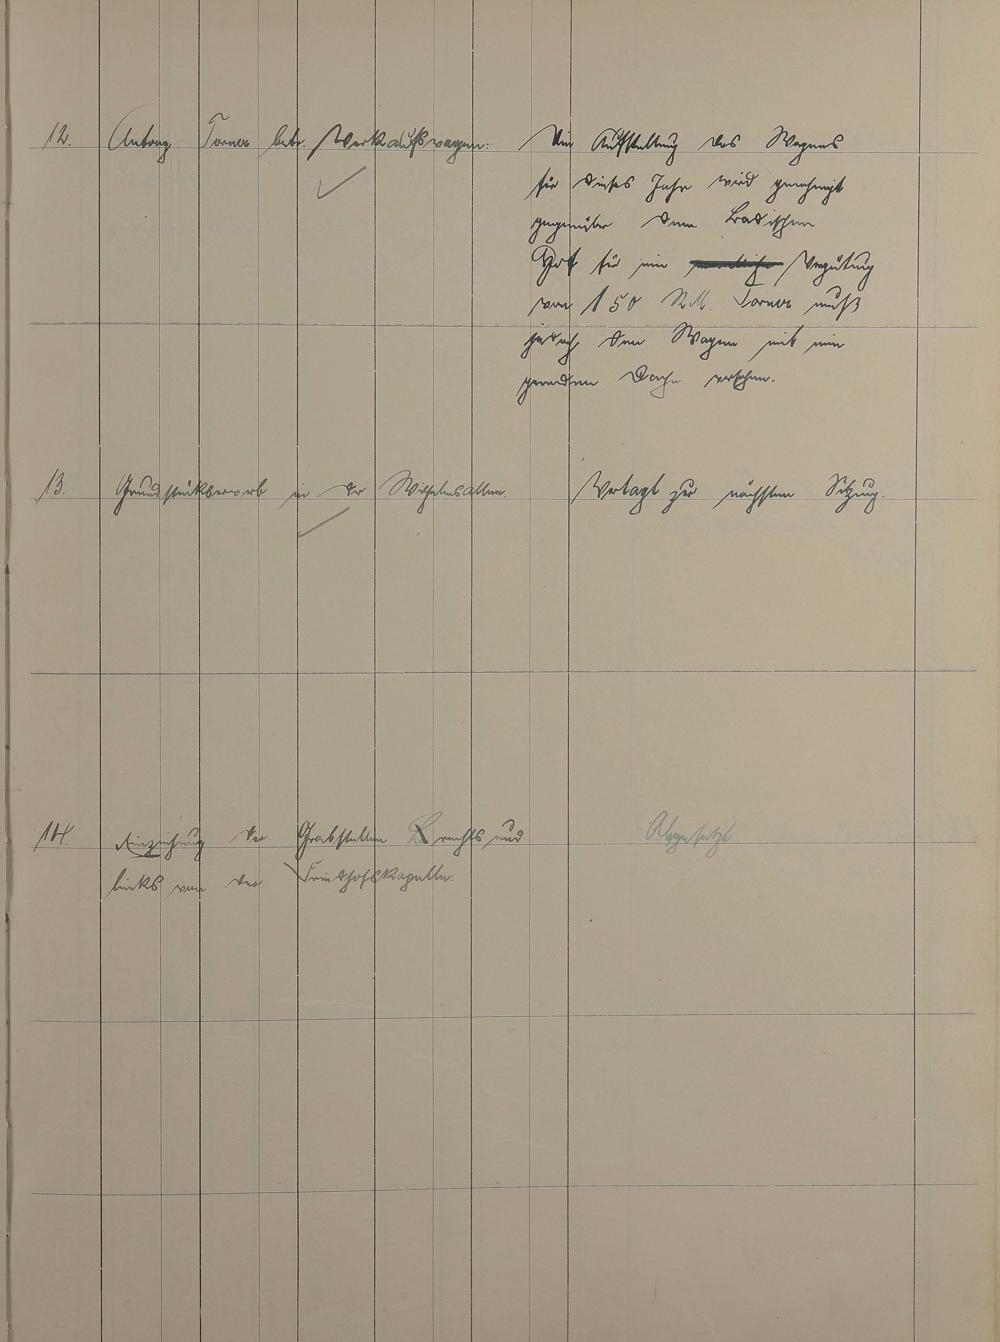 12. Antrag Torner betr. Verkaufswagen.
Die Aufstellung des Wagens
für dieses Jahr wird genehmigt
gegenüber dem Badischen
Hof für eine Vergütung
von 150 RM. Torner muß
jedoch den Wagen mit ein
geraden Dache versehen.
13. Grundstückserwerb in der Wilhelmsallee.
Vertagt zur nächsten Sitzung.
14. Einziehung der Grabstellen rechts und
links von der Friedhofskapelle.
Abgesetzt